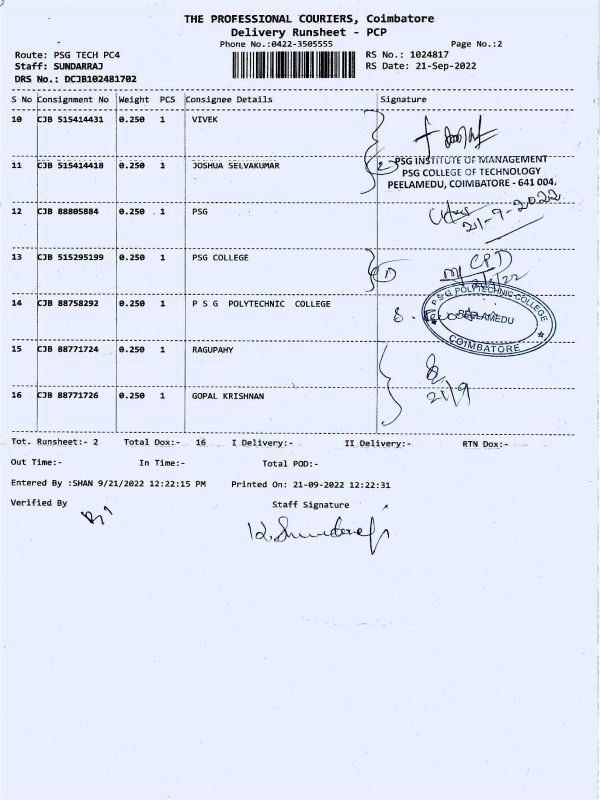 THE PROFESSIONAL COURIERS, Coimbatore
Delivery Runsheet - PCP
Phone No.:0422-3505555
Page No.:2
Route: PSG TECH PC4
RS No.: 1024817
Staff: SUNDARRAJ
RS Date: 21-Sep-2022
DRS No.: DCJB102481702
S No Consignment No Weight PCS Consignee Details Signature
10 CJB 515414431 0.250 1 VIVEK
11 CJB 515414418 0.250 1 JOSHUA SELVAKUMAR
2
PSG INSTITUTE OF MANAGEMENT
PSG COLLEGE OF TECHNOLOGY
PEELAMEDU, COIMBATORE - 641 004.
12 CJB 88805884 0.250 1 PSG
21-9-2022
13 CJB 515295199 0.250 1 PSG COLLEGE
14 CJB 88758292 0.250 1 P S G POLYTECHNIC COLLEGE
PSG POLYTECHNIC COLLEGE
PEELAMEDU
COIMBATORE
15 CJB 88771724 0.250 1 RAGUPAHY
16 CJB 88771726 0.250 1 GOPAL KRISHNAN
21/9
Tot. Runsheet:- 2 Total Dox:- 16 I Delivery:- II Delivery:- RTN Dox:-
Out Time:- In Time:- Total POD:-
Entered By :SHAN 9/21/2022 12:22:15 PM Printed On: 21-09-2022 12:22:31
Verified By Staff Signature